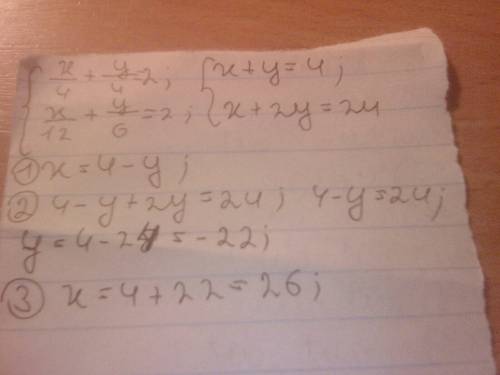 { x/4 + y/4 = 2; { x + y = 4;
x/12 + y/6 = 2; x + 2y = 24
① x = 4 - y;
② 4 - y + 2y = 24; 4 - y = 24;
y = 4 - 24 = -22;
③ x = 4 + 22 = 26;